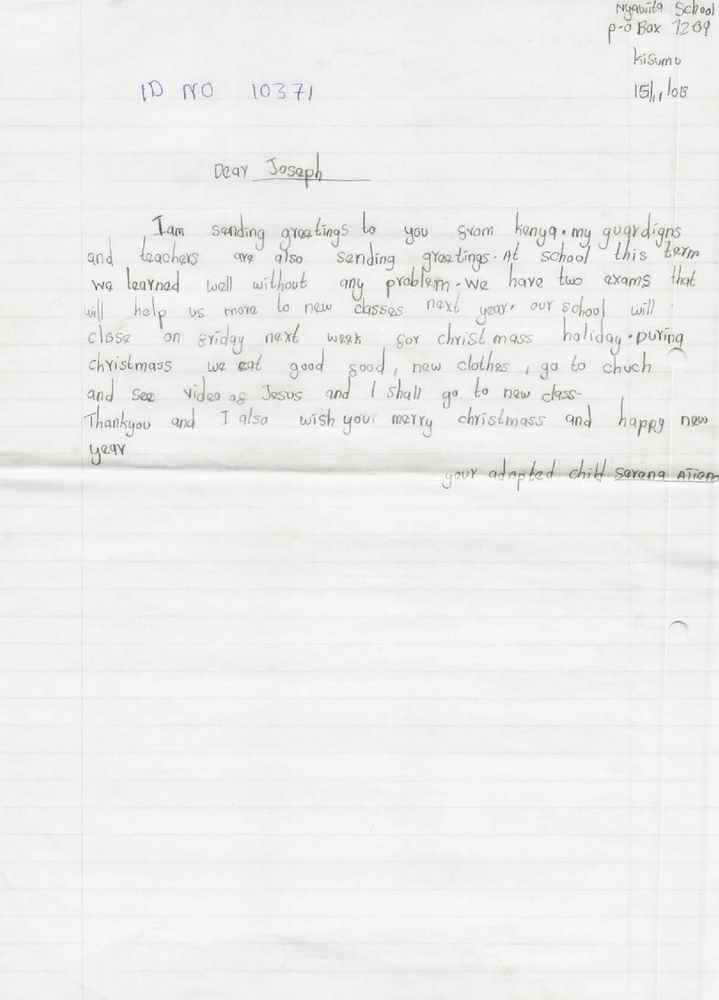 School
P.O Box 1209
Kisumu
ID NO 10371
15/11/08
Dear Joseph
I am sending greetings to you from kenya. my guardians
and teachers are also sending greetings. At school this term
we learned well without any problem. We have two exams that
will help us more to new classes next year. our school will
close on friday next week for christ mass holiday. During
christmass we eat good food, new clothes, go to chuch
and see video of Jesus and I shall go to new class.
Thankyou and I also wish you merry christmass and happy new
year
your adopted child